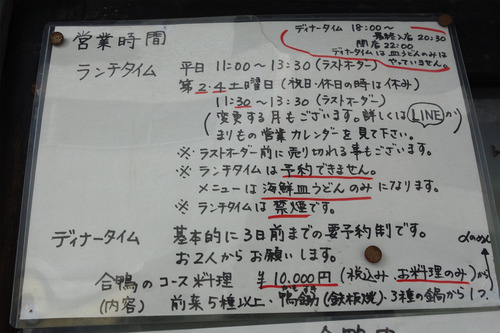 営業時間
ディナータイム 18:00〜
最終入店 20:30
閉店 22:00
ディナータイムは皿うどんのみは
やっていません。
ランチタイム 平日 11:00〜13:30 (ラストオーダー)
第2・4土曜日 (祝日・休日の時は休み)
11:30〜13:30 (ラストオーダー)
(変更する月もございます。詳しくはLINEか
まりもの営業カレンダーを見て下さい。)
※ ラストオーダー前に売り切れる事もございます。
※ ランチタイムは予約できません。
メニューは海鮮皿うどんのみになります。
※ ランチタイムは禁煙です。
ディナータイム 基本的に3日前までの要予約制です。
お2人からお願いします。
合鴨のコース料理 ¥10.000円 (税込み・お料理のみ)から
(内容) 前菜5種以上・鴨鍋(鉄板焼・3種の鍋から1つ